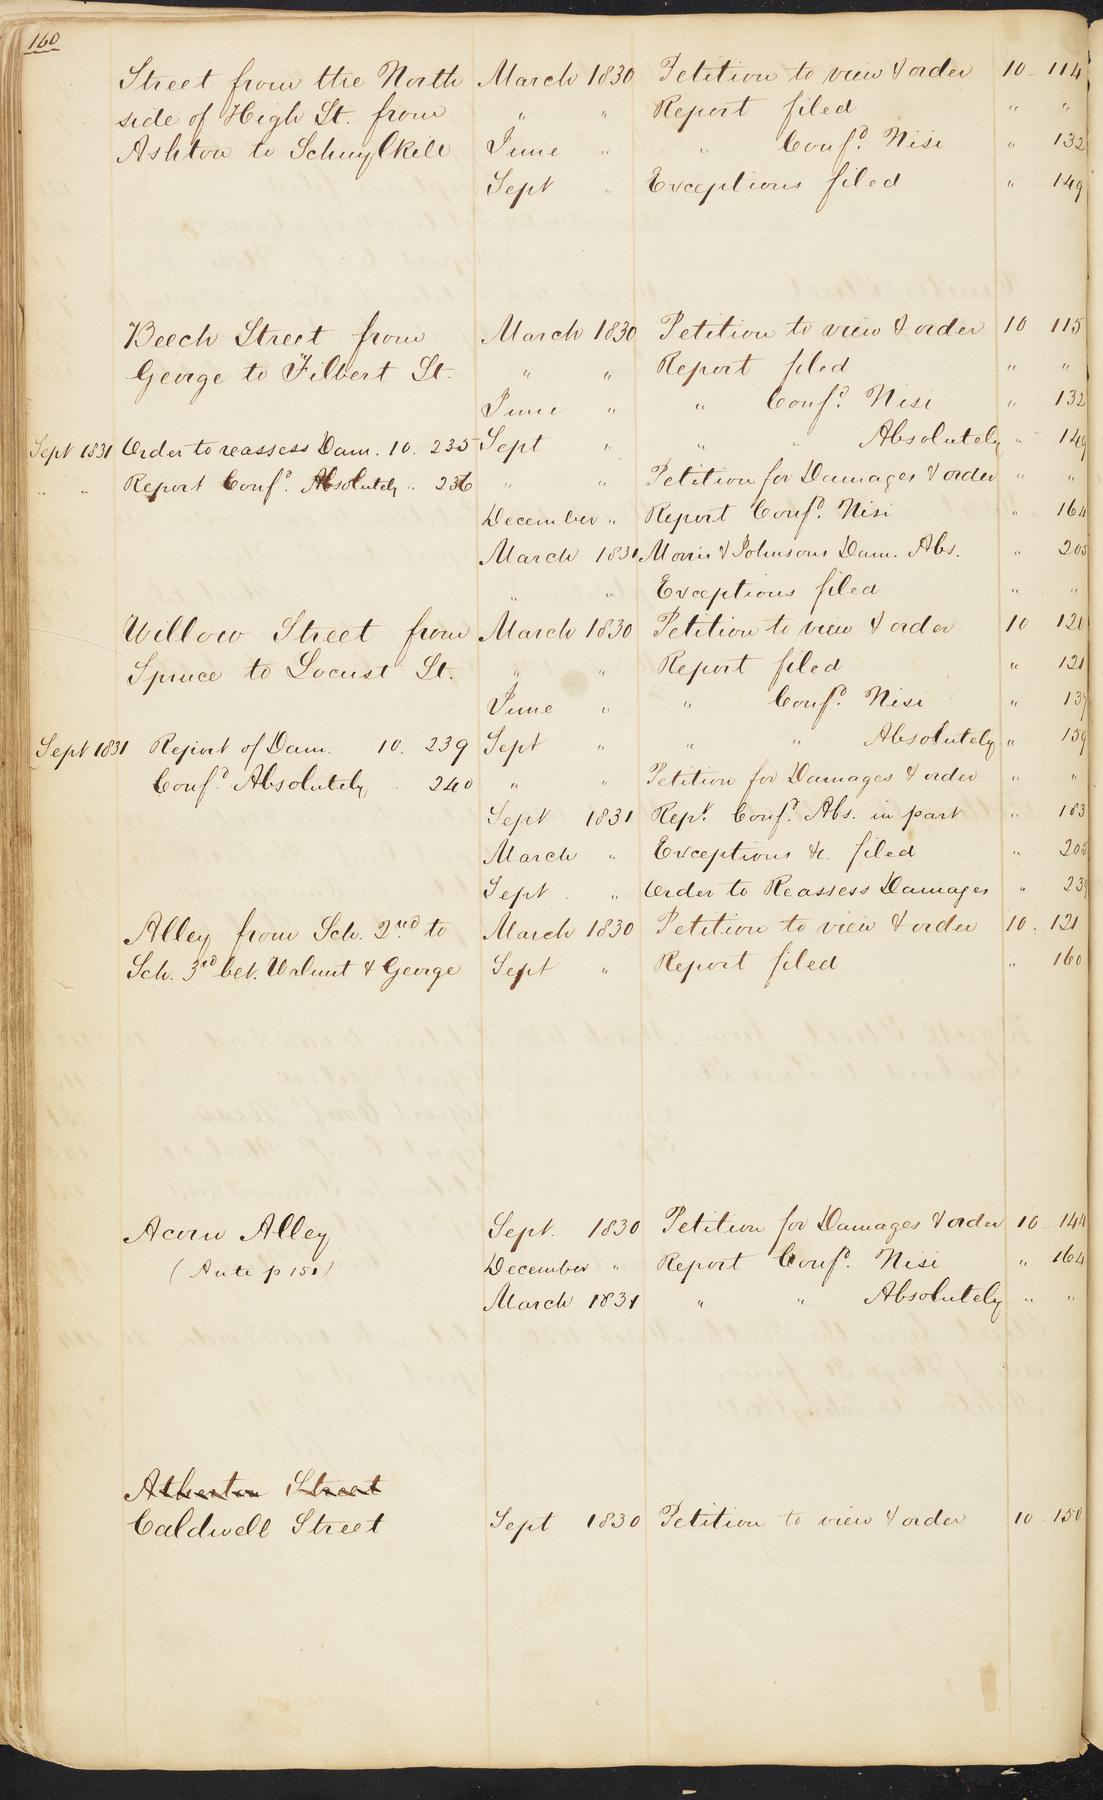 160
Street from the North March 1830 Petition to view & order 10 - 114
side of High St. from " " Report filed " "
Ashton to Schuylkill June " " Confd. Nisi " 132
Sept " Exceptions filed " 149
Beech Street from March 1830 Petition to view & order 10 115
George to Filbert St. " " Report filed " "
June " " Confd. Nisi " 132
Sept 1831 Order to reassess Dam. 10. 235 Sept " " " Absolutely " 149
" " Report Confd. Absolutely " 236 " " Petition for Damages & order " "
December " Report Confd. Nisi " 164
March 1831 Morris & Johnsons Dam. Abs. " 205
" " Exceptions filed " "
Willow Street from March 1830 Petition to view & order 10 120
Spruce to Locust St. " " Report filed " 121
June " " Confd. Nisi " 137
Sept 1831 Report of Dam. 10. 239 Sept " " " Absolutely " 159
Confd. Absolutely . 240 " " Petition for Damages & order " "
Sept 1831 Rept. Confd. Abs. in part " 183
March " Exceptions &c. filed " 205
Sept . " Order to Reassess Damages " 239
Alley from Sch. 2nd to March 1830 Petition to view & order 10 . 121
Sch. 3rd bet. Walnut & George Sept " Report filed " 160
Acorn Alley Sept. 1830 Petition for Damages & order 10 - 144
(Ante p 151) December " Report Confd. Nisi " 164
March 1831 " " Absolutely " "
Atherton Street
Caldwell Street Sept 1830 Petition to view & order 10 - 150